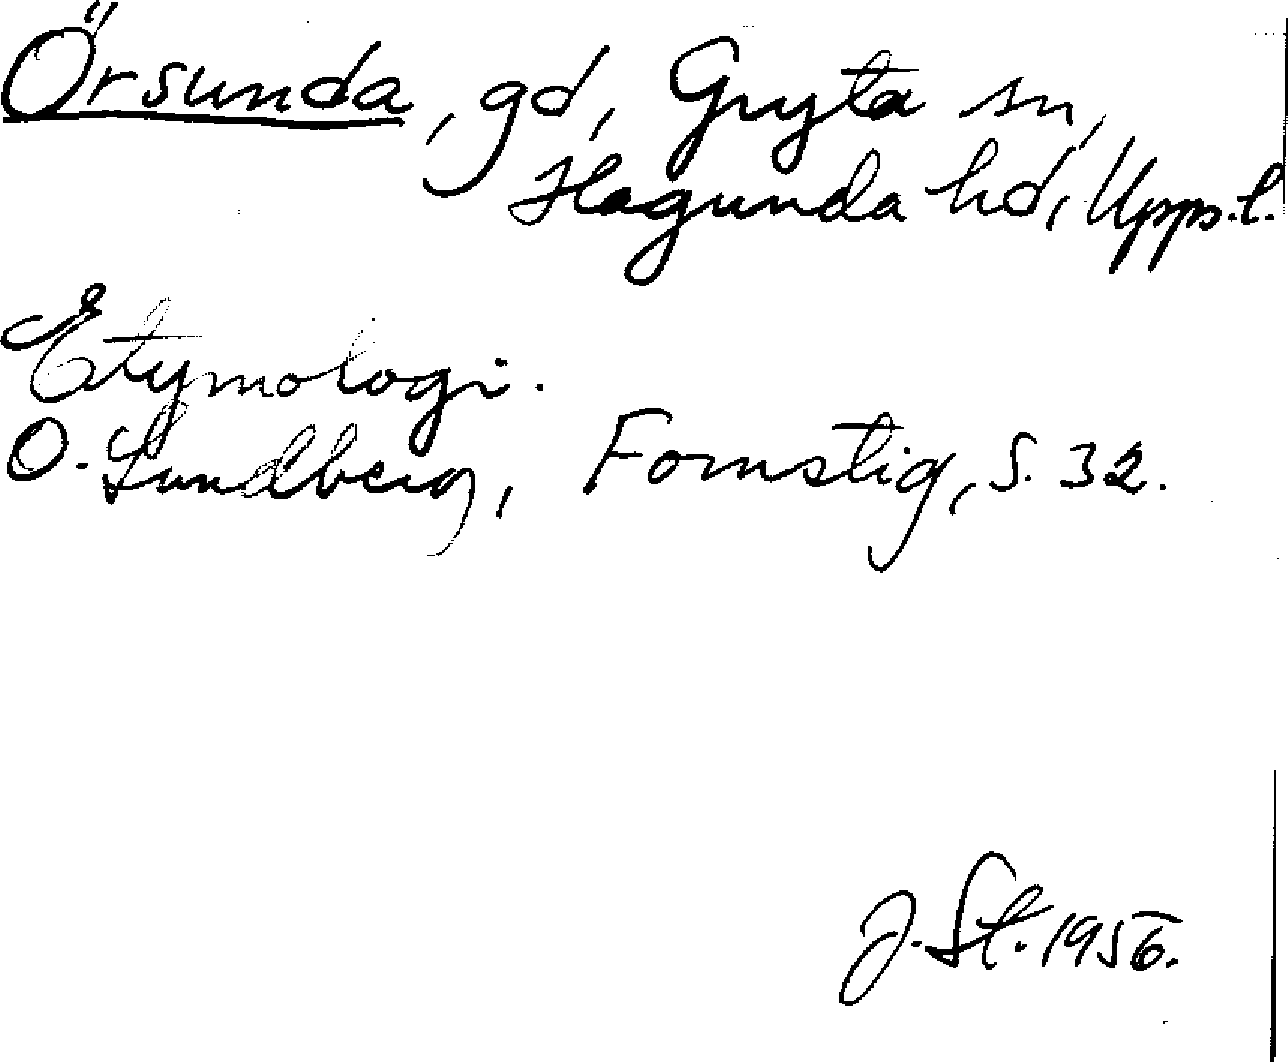 Örsunda, gd, Gryta sn,
Hagunda hd, Upps.l.
Etymologi.
O. Lundberg, Fornstig, s. 32.
J. St. 1956.